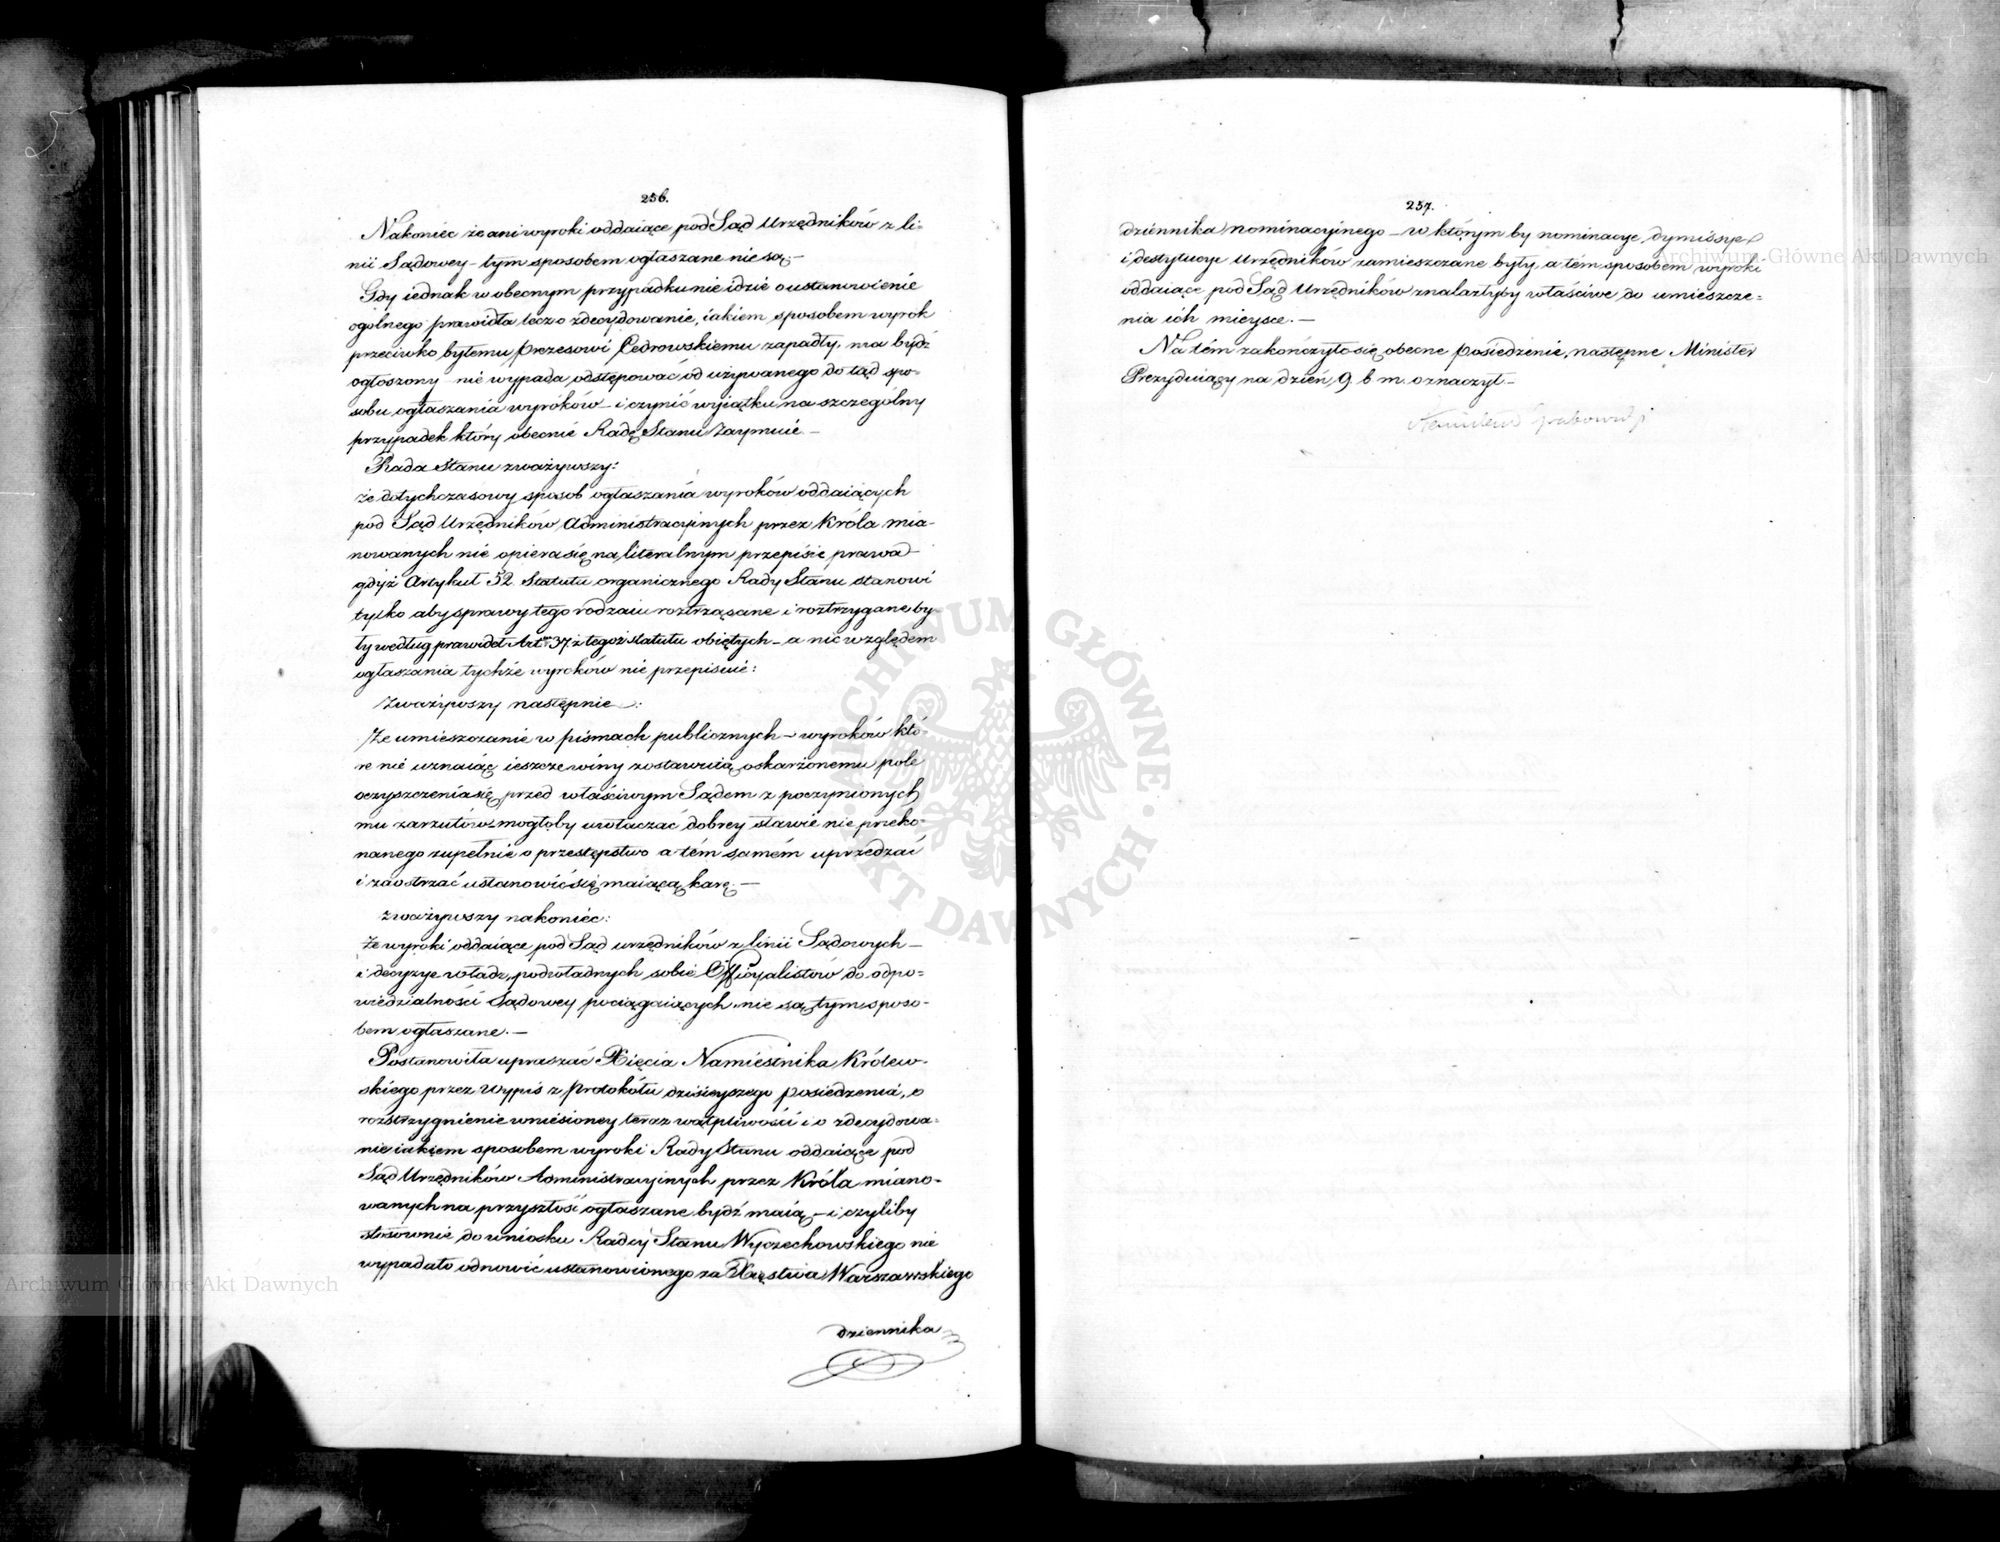 256.
Nakoniec że ani wyroki oddaiące pod Sąd Urzędników z li-
nii Sądowey – tym sposobem ogłaszane nie są. –
Gdy iednak w obecnym przypadku nie idzie o ustanowienie
ogólnego prawidła lecz o zdecydowanie, iakiem sposobem wyrok
przeciwko byłemu Prezesowi Cedrowskiemu zapadły, ma bydź
ogłoszony nie wypada odstępować od używanego do tąd spo-
sobu ogłaszania wyroków – i czynić wyiątku na szczególny
przypadek który obecnie Radę Stanu zaymuie. –
Rada Stanu zważywszy:
że dotychczasowy sposob ogłaszania wyroków oddaiących
pod Sąd Urzędników Administracyinych przez Króla mia-
nowanych nie opiera się na literalnym przepisie prawa –
gdyż Artykuł 52 Statutu organicznego Rady Stanu stanowi
tylko aby sprawy tego rodzaiu roztrząsane i roztrzygane by-
ły według prawideł Art. 37 z tegoż statutu obiętych – a nic względem
ogłaszania tychże wyroków nie przepisuie:
Zważywszy następnie:
Że umieszczanie w pismach publicznych – wyroków któ-
re nie uznaiąc ieszcze winy zostawuią oskarżonemu pole
oczyszczenia się przed właściwym Sądem z poczynionych
mu zarzutów mogłoby uwłaczać dobrey sławie nie przeko-
nanego zupełnie o przestępstwo a tém samém uprzedzać
i zaostrzać ustanowić się maiącą karę. –
Zważywszy nakoniec:
Że wyroki oddaiące pod Sąd urzędników z linii Sądowych –
i decyzye władz, podwładnych sobie Officyalistów do odpo-
wiedzialności Sądowey pociągaiących, nie są tym sposo-
bem ogłaszane. –
Postanowiła upraszać Xięcia Namiestnika Królew-
skiego przez wypis z Protokółu dzisieyszego posiedzenia, o
rozstrzygnienie wniesioney teraz wątpliwości i o zdecydowa-
nie iakiem sposobem wyroki Rady Stanu oddaiące pod
Sąd Urzędników Administracyinych przez Króla miano-
wanych na przyszłość ogłaszane bydź maią – i czyliby
stosownie do wniosku Radcy Stanu Wyczechowskiego nie
wypadało odnowić ustanowionego za Xięstwa Warszawskiego
dziennika
257.
dziennika nominacyinego – w którym by nominacye, dymissye
i destytucye Urzędników zamieszczane były, a tém sposobem wyroki
oddaiące pod Sąd Urzędników znalazłyby właściwe do umieszcze-
nia ich mieysce. –
Na tém zakończyło się obecne Posiedzenie, następne Minister
Prezyduiący na dzień 9. b. m. oznaczył –
Stanisław Grabowski
ARCHIWUM GŁÓWNE · AKT DAWNYCH ·
Archiwum Główne Akt Dawnych
Archiwum Główne Akt Dawnych